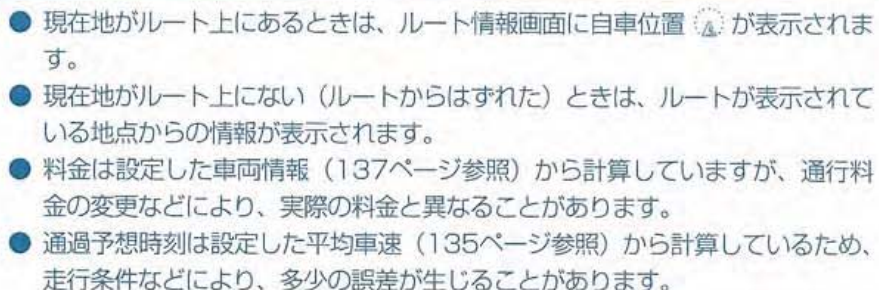 ● 現在地がルート上にあるときは、ルート情報画面に自車位置 が表示されま
す。
● 現在地がルート上にない（ルートからはずれた）ときは、ルートが表示されて
いる地点からの情報が表示されます。
● 料金は設定した車両情報（137ページ参照）から計算していますが、通行料
金の変更などにより、実際の料金と異なることがあります。
● 通過予想時刻は設定した平均車速（135ページ参照）から計算しているため、
走行条件などにより、多少の誤差が生じることがあります。